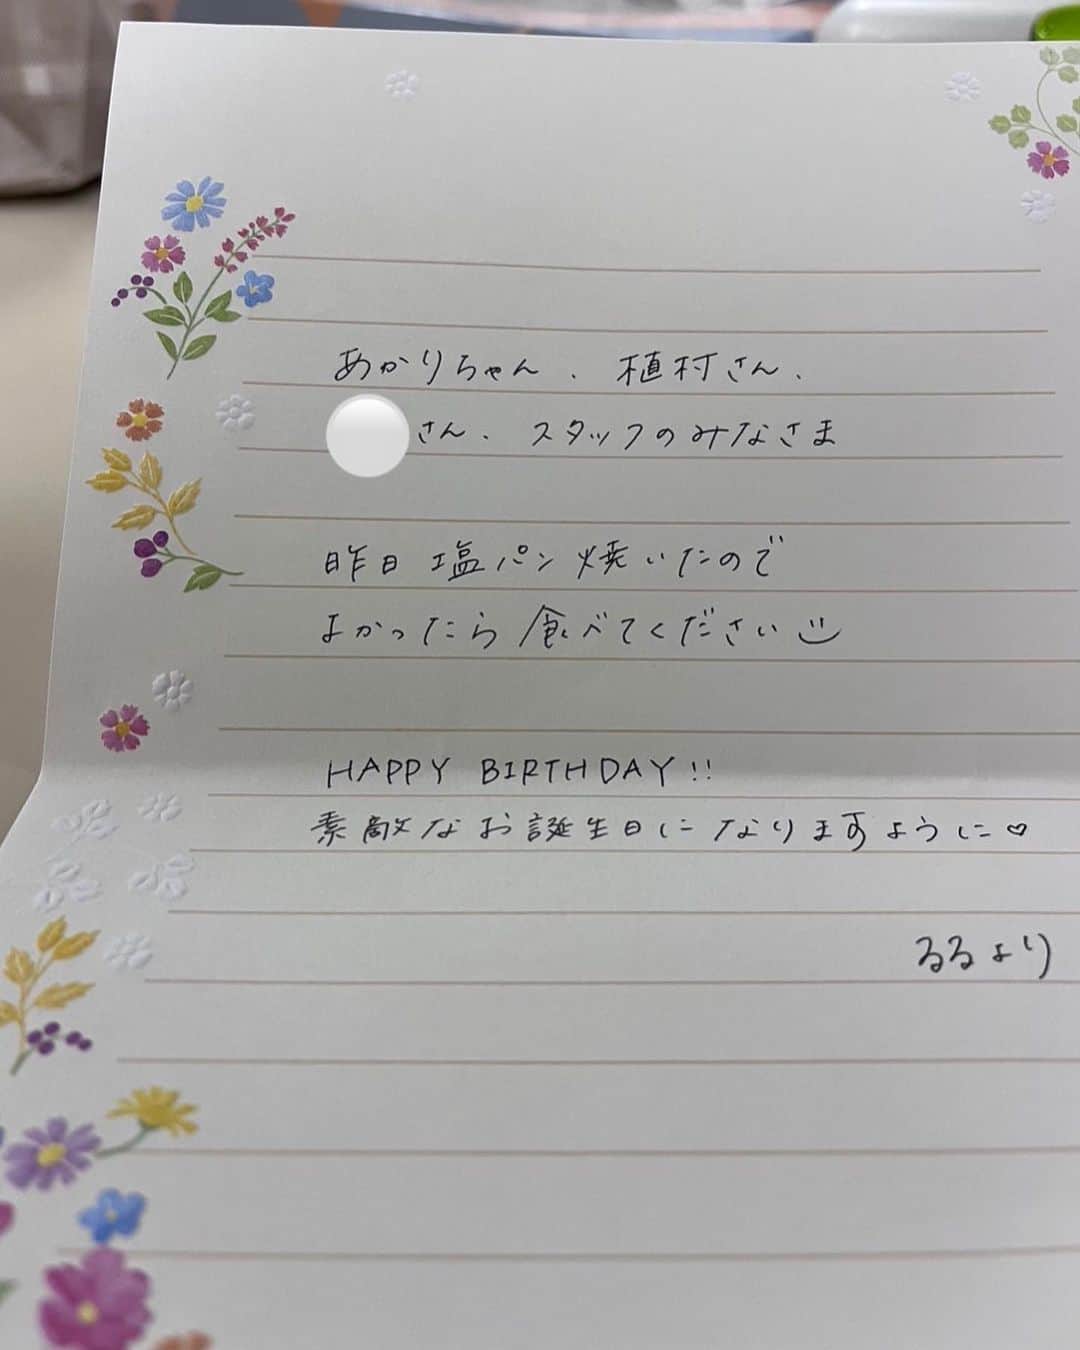 あかりちゃん、植村さん、
さん、スタッフのみなさま
昨日塩パン焼いたので
よかったら食べてください
HAPPY BIRTHDAY!!
素敵なお誕生日になりますように♡
るるより